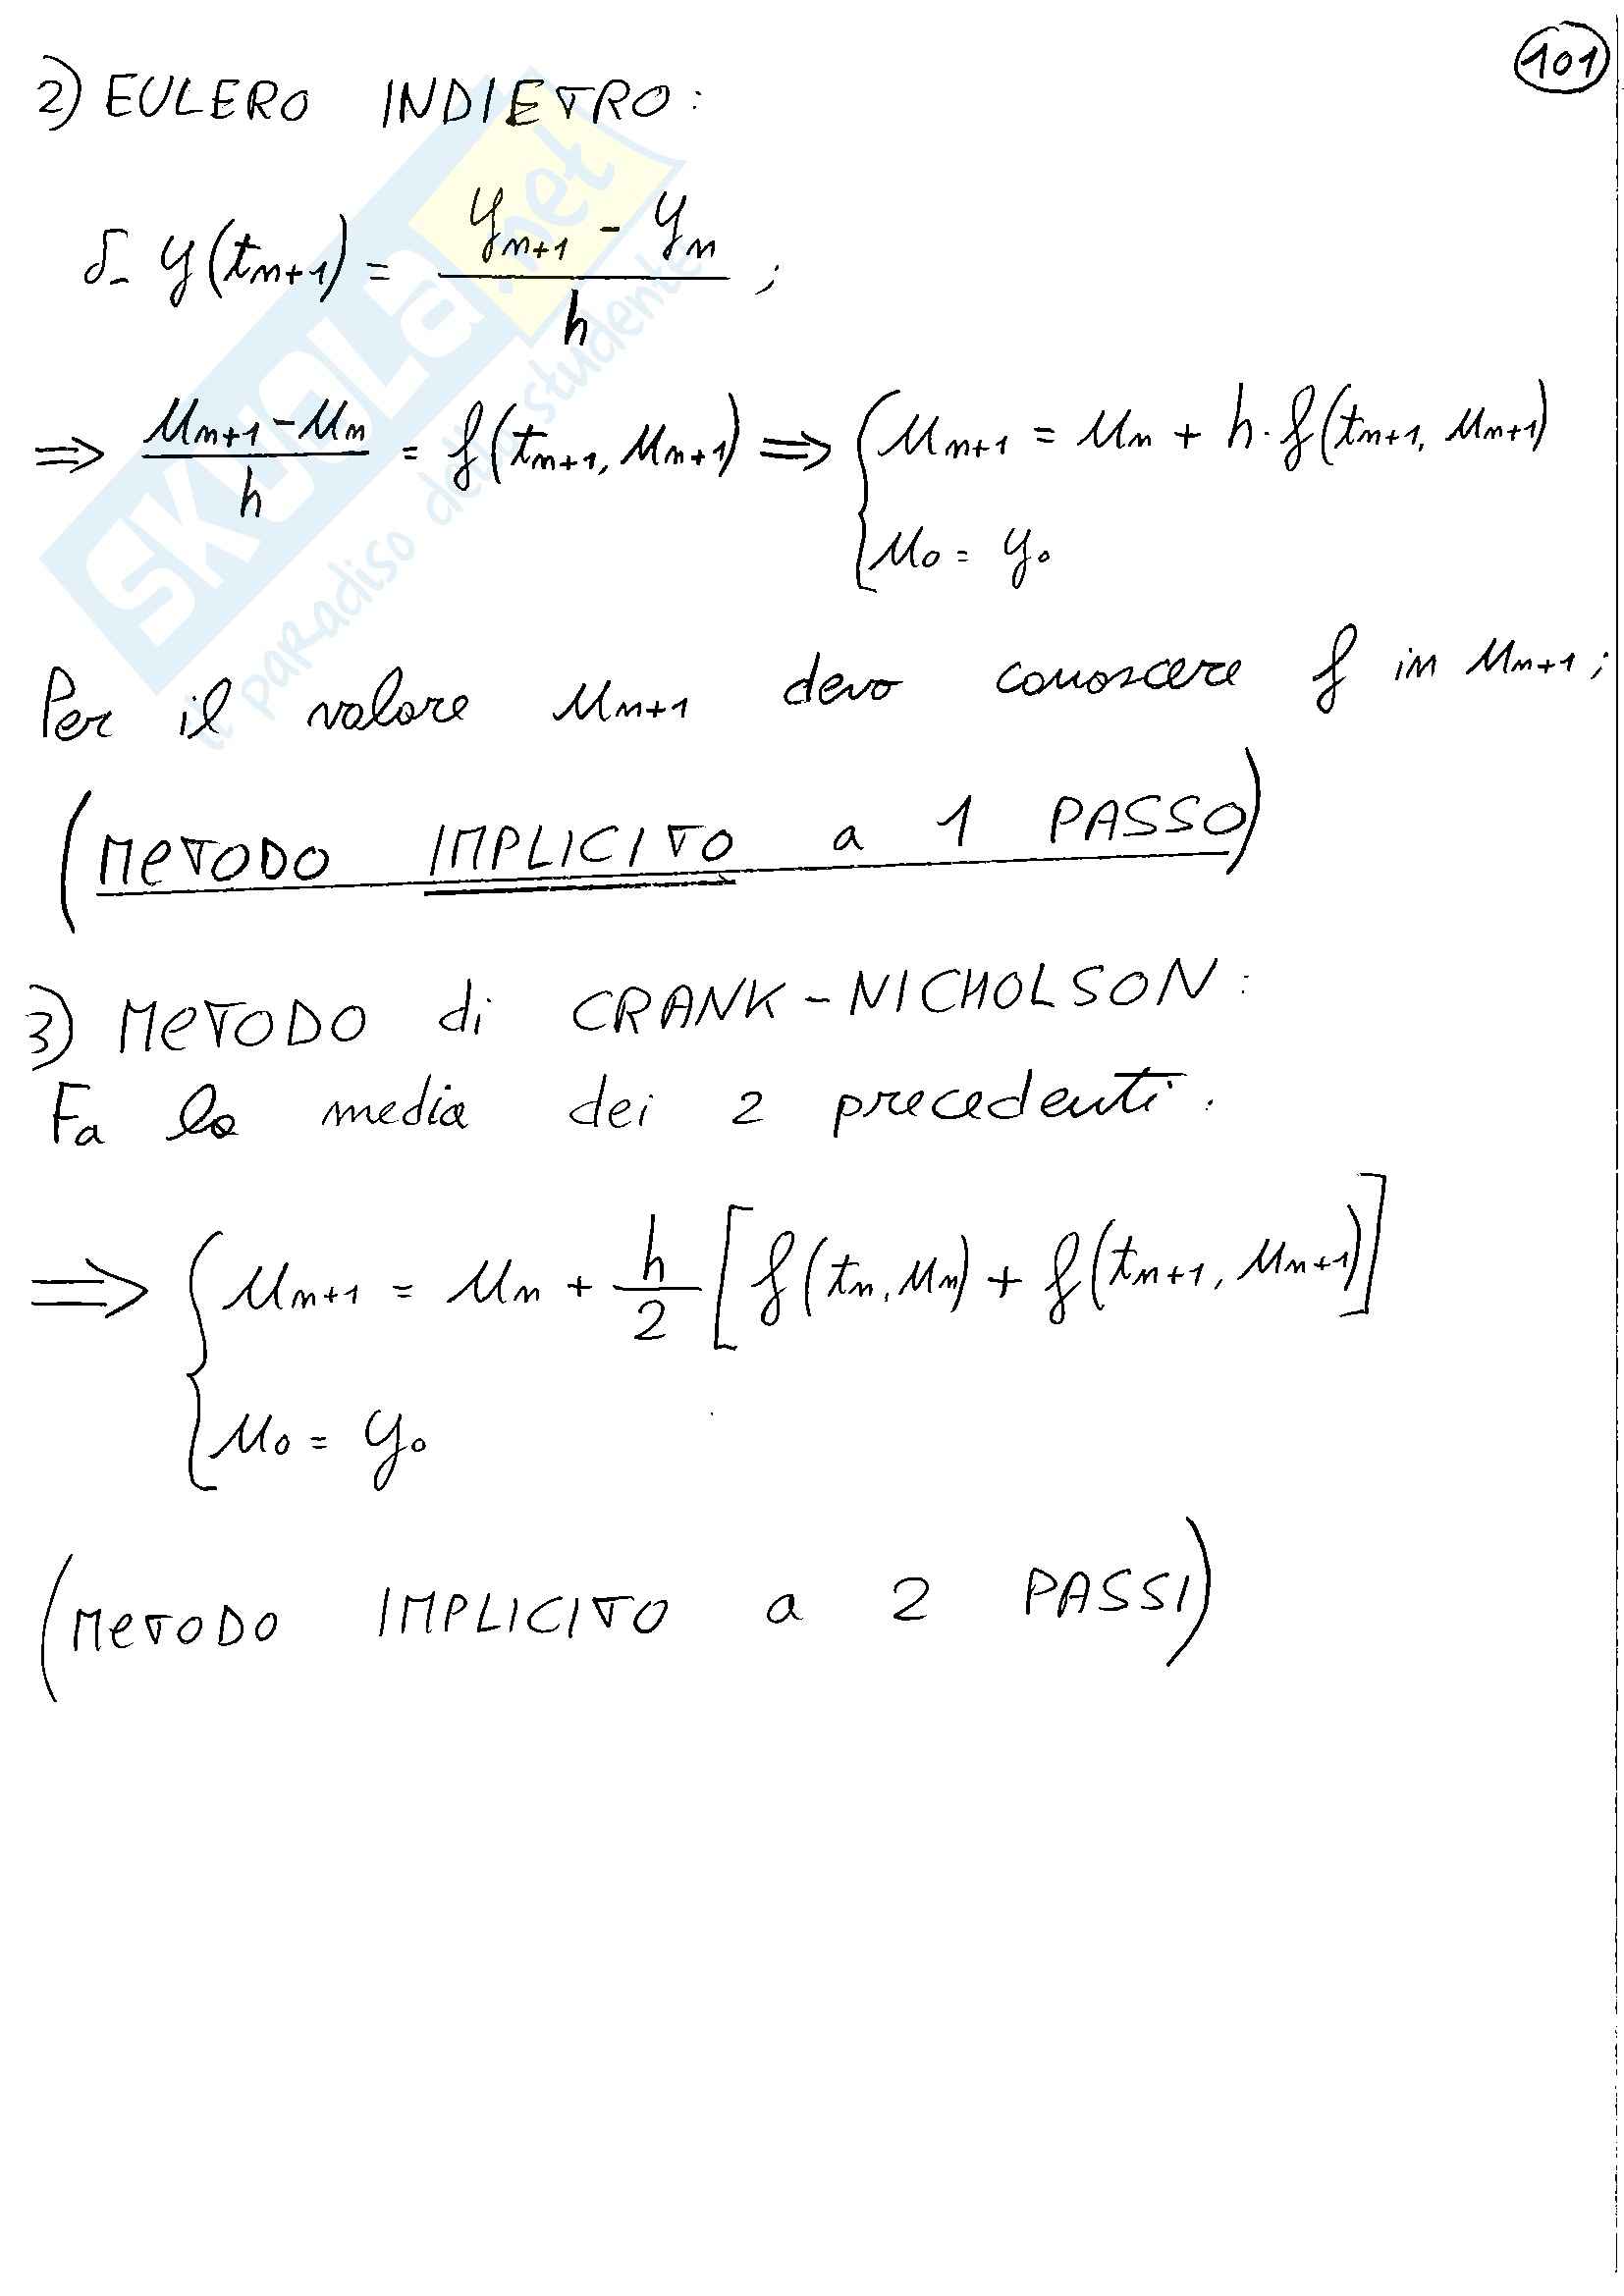 101
2) EULERO INDIETRO:
δ- y(tn+1) = (yn+1 - yn) / h ;
⇒ (un+1 - un) / h = f(tn+1, un+1) ⇒ { un+1 = un + h·f(tn+1, un+1)
u0 = y0
Per il valore un+1 devo conoscere f in un+1;
(METODO IMPLICITO a 1 PASSO)
3) METODO di CRANK-NICHOLSON:
Fa la media dei 2 precedenti.
⇒ { un+1 = un + h/2 [f(tn, un) + f(tn+1, un+1)]
u0 = y0
(METODO IMPLICITO a 2 PASSI)
SKUOLA.net
il paradiso dello studente